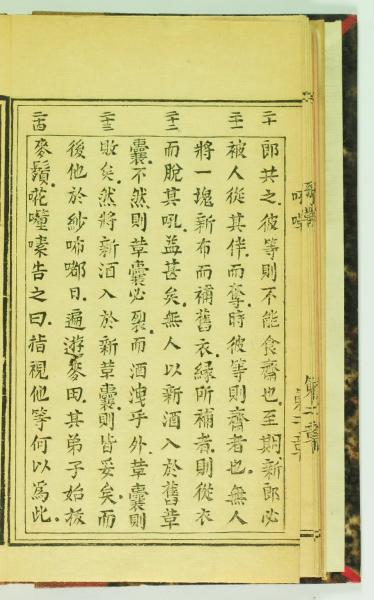 二十
郎共之彼等則不能食齋也至期新郎必
二十一
被人從其伴而奪時彼等則齋者也無人
將一塊新布而補舊衣緣所補者則從衣
二十二
而脫其吼益甚矣無人以新酒入於舊草
囊不然則草囊必裂而酒洩乎外草囊則
二十三
敗矣然將新酒入於新草囊則皆妥矣而
後他於紗咘嘟日遍遊麥田其弟子始拔
二十四
麥鬚𠱂㘒嗉告之曰指視他等何以為此
第二章